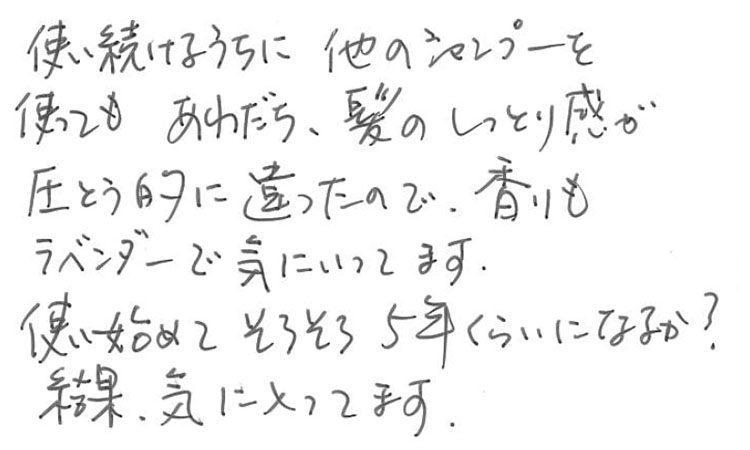 使い続けるうちに 他のシャンプーを
使っても あわだち、髪のしっとり感が
圧とう的に違ったので、香りも
ラベンダーで気にいってます.
使い始めて そろそろ 5年くらいになるか?
結果、気に入ってます.